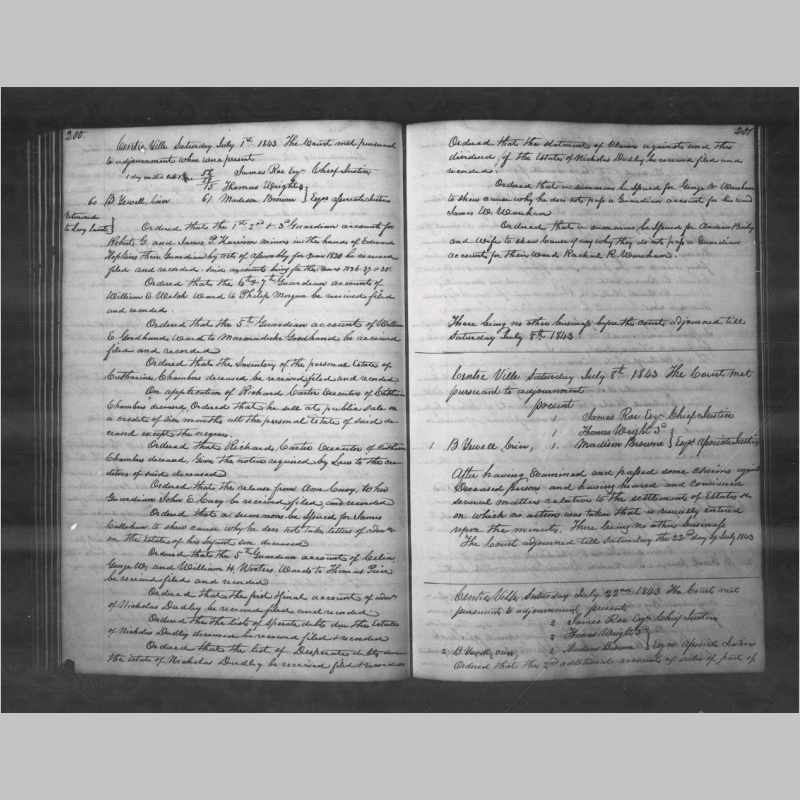 200
Centre Ville Saturday July 1st 1843 The Court met pursuant
to adjournment when were present
James Roe Esqr Chief Justice
15 Thomas Wright 3d
60 B Jewell Crier 61 Madison Browne } Esqrs Associate Justices
Returned
to Levy Court }
Ordered that the 1st 2nd & 3d Guardian accounts for
Robert G. and James P. Harrison minors in the hands of Edward
Hopkins their Guardian by acts of assembly for 1830 be received
filed and recorded said accounts being for the years 1836
Ordered that the 6th & 7th Guardian accounts of
William E Welch Ward to Philip Morgan be received filed
and recorded
Ordered that the 5th Guardian account of William
E Goodhand Ward to Marmaduke Goodhand be received
filed and recorded
Ordered that the Inventory of the personal Estate of
Catharine Chambers deceased be received filed and recorded
On application of Richard Carter Executor of Catharine
Chambers deceased Ordered that he sell at public sale on
a credit of six months all the personal Estate of said de-
ceased except the negroes
Ordered that Richard Carter Executor of Catharine
Chambers deceased, Give the notice required by Law to the cre-
ditors of said deceased
Ordered that the release from Ann Cacy, to her
Guardian John E Cacy be received filed, and recorded
Ordered that a summons be Issued for James
Callahan to shew cause why he does not take letters of Admn
on the Estate of his Infant son deceased
Ordered that the 5th Guardian account of Celia
George W. and William H. Wooters Wards to Thomas Price
be received filed and recorded
Ordered that the first & final account of Admr
of Nicholas Dudley be received filed and recorded
Ordered the the lists of Sperate debts due the Estate
of Nicholas Dudley deceased be received filed & recorded
Ordered that the list of Desperate debts due
the Estate of Nicholas Dudley be received filed & recorded
201
Ordered that the statement of Claims against and the
dividend, of the Estate of Nicholas Dudley be received filed and
recorded
Ordered that a summons be Issued for George W Wareham
to shew cause why he does not pass a Guardian account for his ward
James W. Wareham
Ordered, that a summons be Issued for
and Wife to shew Cause if any why they do not pass a Guardian
account for their Ward Rachael R. Wareham
There being no other business before the court, adjourned till
Saturday July 8th 1843
Centre Ville Saturday July 8th 1843 The Court met
pursuant to adjournment
present
1 James Roe Esqr Chief Justice
1 Thomas Wright 3d
1 B Jewell Crier, 1. Madison Browne } Esqrs Associate Justices
After having Examined and passed some claims against
Deceased persons and having heard and considered
several matters relative to the settlement of Estates &c
on which no action was taken that is usually entered
upon the minutes, There being no other business
The Court adjourned till Saturday the 22nd day of July 1843
Centre Ville Saturday July 22nd 1843 The Court met
pursuant to adjournment, present
2 James Roe Esqr Chief Justice
2 Thomas Wright 3d
2 B Jewell crier, 2 Madison Browne } Esqrs Associate Justices
Ordered that the 2nd additional account of sales of part of